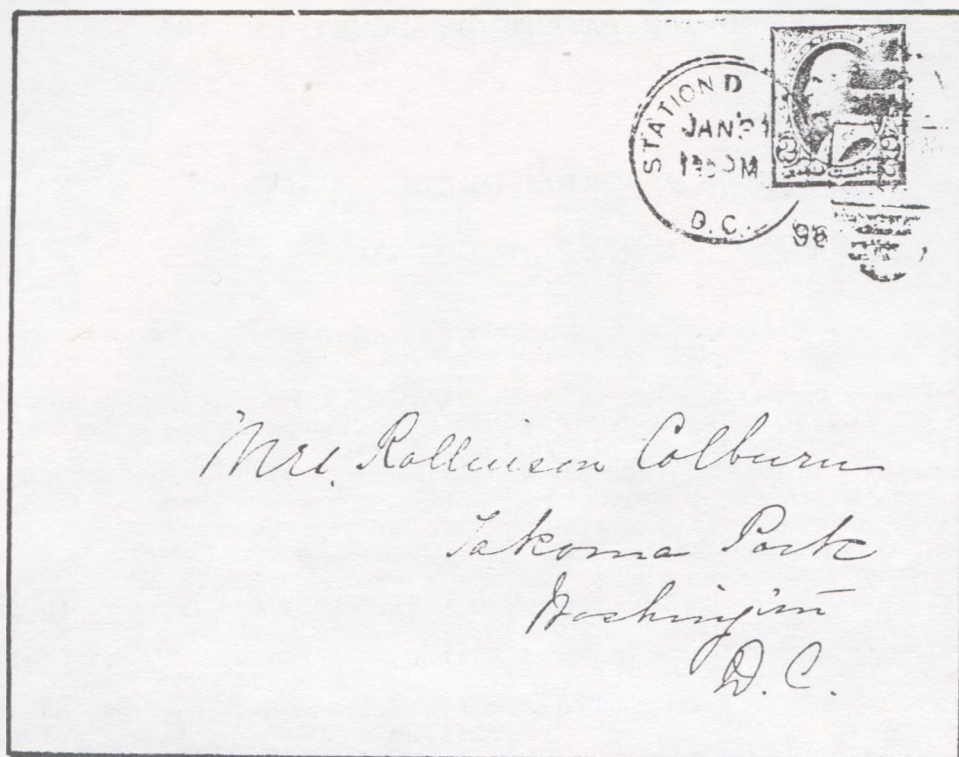 STATION D
JAN
D.C.
98
Mrs. Rollinson Colburn
Takoma Park
Washington
D. C.